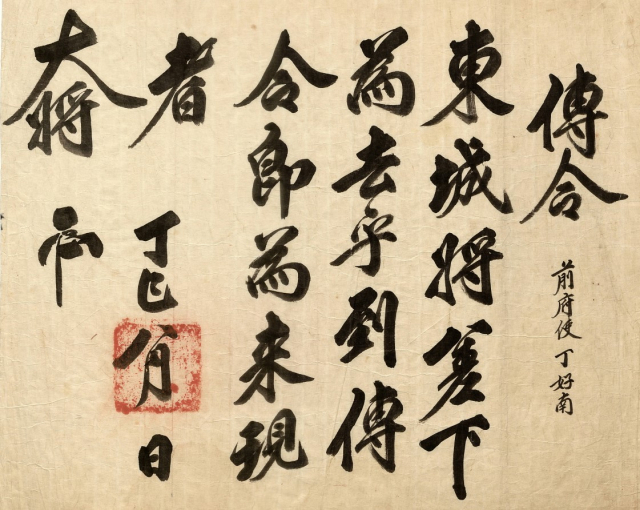 傳令
前府使丁好南
東城將差下
為去乎到傳
令即為来現
者
丁巳八月 日
大將